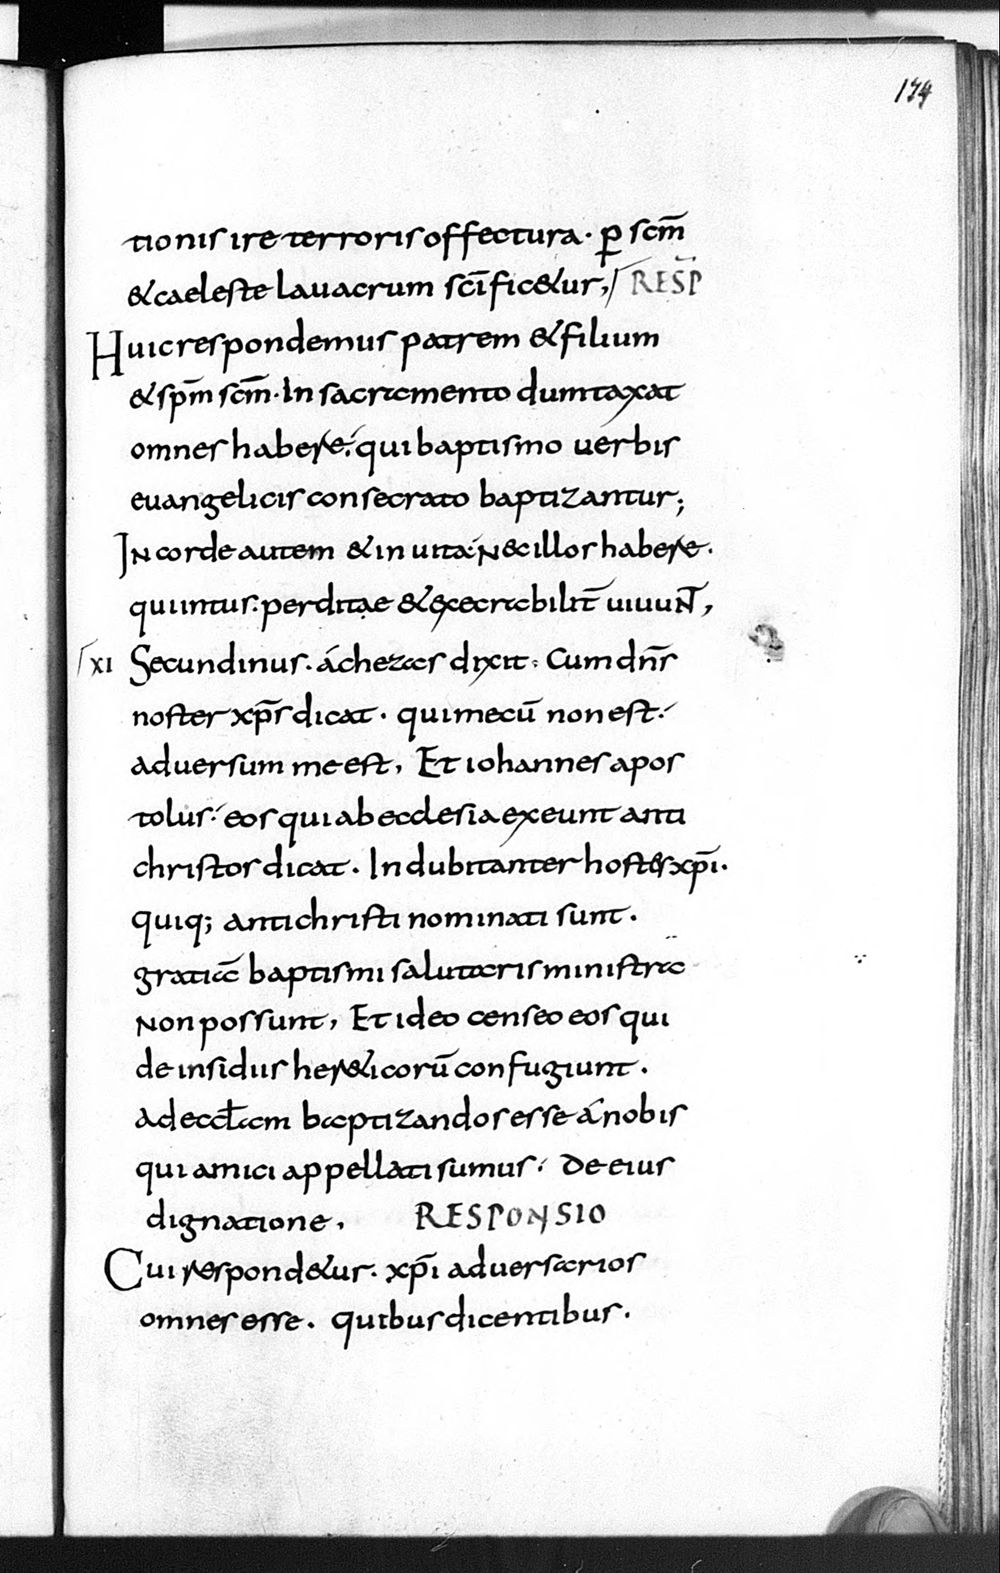 174
tionis ire terroris offectura · p̱ scm̄
&caeleste lavacrum scīfic&ur, RESP̄
Huic respondemus patrem & filium
& sp̄m scm̄ · In sacramento dumtaxat
omnes habere: qui baptismo uerbis
euangelicis consecrato baptizantur;
IN corde autem & in uita Nec illos habere.
qui intus perditae & execrabilit̄ uiuuN̄,
XI Secundinus. á chezas dixit: Cum dn̄s
noster xp̄s dicat · qui mecū non est:
adversum me est, Et iohannes apos
tolus: eos qui ab ecclesia exeunt anti
christos dicat. Indubitanter hostes xp̄i.
quiq; antichristi nominati sunt.
gratiā baptismi salutaris ministra
Non possunt, Et ideo censeo eos qui
de insidiis her&icorū confugiunt.
ad eccl̄am baptizandos esse á nobis
qui amici appellati sumus: De eius
dignatione, RESPONSIO
Cui respond&ur. xp̄i adversarios
omnes esse. quibus dicentibus.